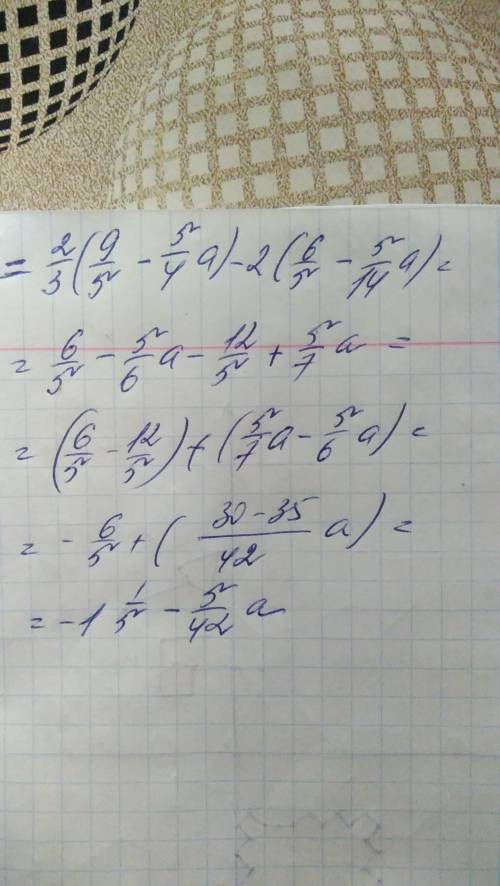 = 2/3 (9/5 - 5/4 a) - 2 (6/5 - 5/14 a) =
= 6/5 - 5/6 a - 12/5 + 5/7 a =
= (6/5 - 12/5) + (5/7 a - 5/6 a) =
= - 6/5 + ( (30-35)/42 a) =
= -1 1/5 - 5/42 a